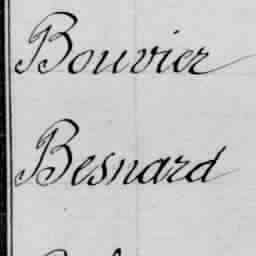 Bouvier
Besnard